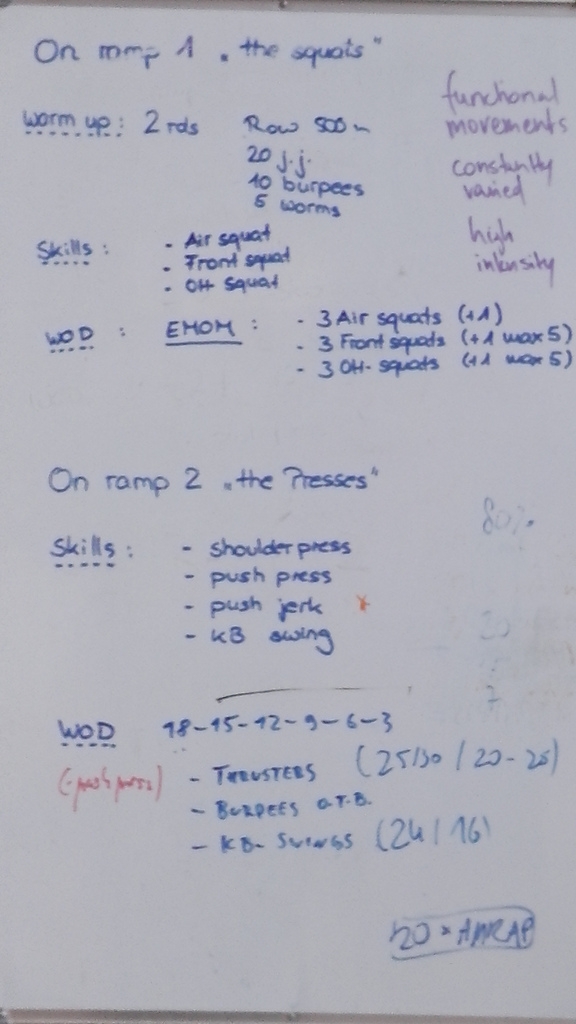 On ramp 1 „the squats"
functional
movements
constantly
varied
high
intensity
Warm up: 2 rds Row 500m
20 j.j.
10 burpees
5 worms
Skills: - Air squat
- Front squat
- OH squat
WOD : EMOM : - 3 Air squats (+1)
- 3 Front squats (+1 max 5)
- 3 OH-squats (+1 max 5)
On ramp 2 „the Presses"
80%
Skills: - shoulder press
- push press
- push jerk *
- KB swing
WOD 18-15-12-9-6-3
(-push press) - THRUSTERS (25/30 / 20-25)
- BURPEES O.T.B.
- KB-SWINGS (24/16)
20 AMRAP